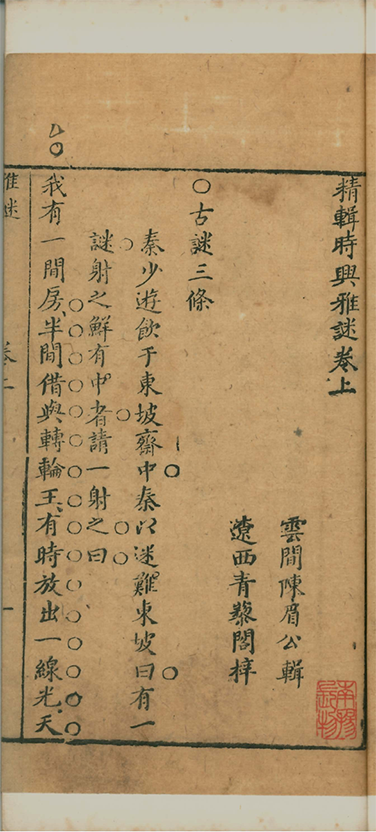 精輯時興雅謎卷上
雲間陳眉公輯
遼西青藜閣梓
○古謎三條
秦少遊飲于東坡齋中秦以迷難東坡曰有一
謎射之鮮有中者請一射之曰
我有一間房半間借與轉輪王有時放出一線光天
雅迷